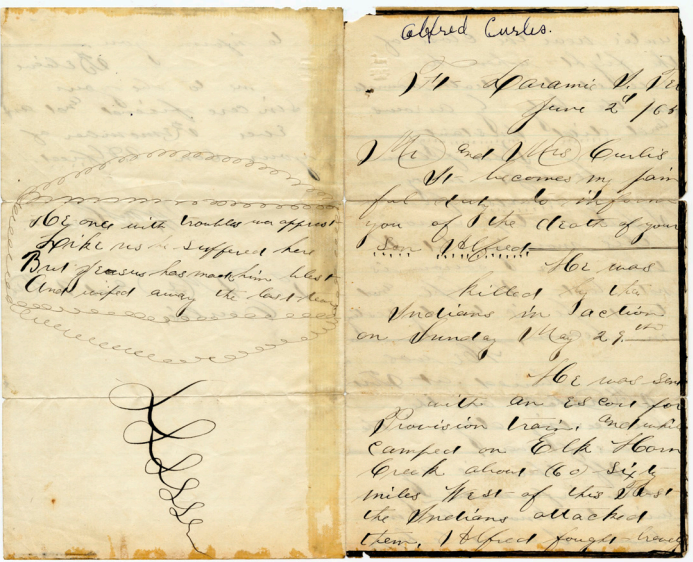 He once with troubles was opprest
Like us suffered here
But Jesus has made him blest
And wiped away the last tear
Alfred Curles.
Ft Laramie
June 2d /65
Mr and Mrs Curlis
It becomes my pain
ful duty to inform
you of the death of your
son Alfred
He was
killed by the
Indians in action
on Sunday May 29th
He was sent
with an escort for
Provision train, and while
camped on Elk Horn
Creek about (60) sixty
miles West of this Post
the Indians attacked
them, Alfred fought